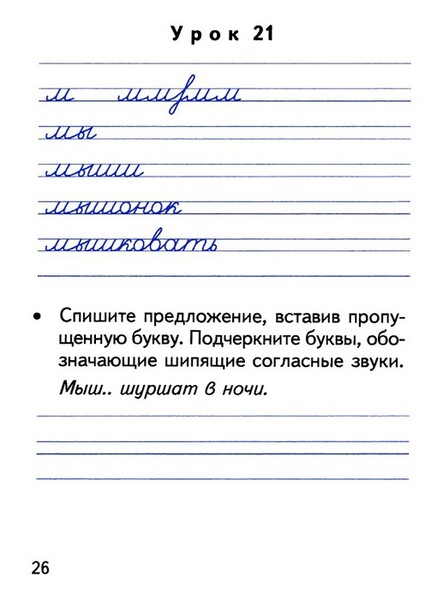 Урок 21
м ммгмм
мы
мыши
мышонок
мышковать
• Спишите предложение, вставив пропу-
щенную букву. Подчеркните буквы, обо-
значающие шипящие согласные звуки.
Мыш.. шуршат в ночи.
26